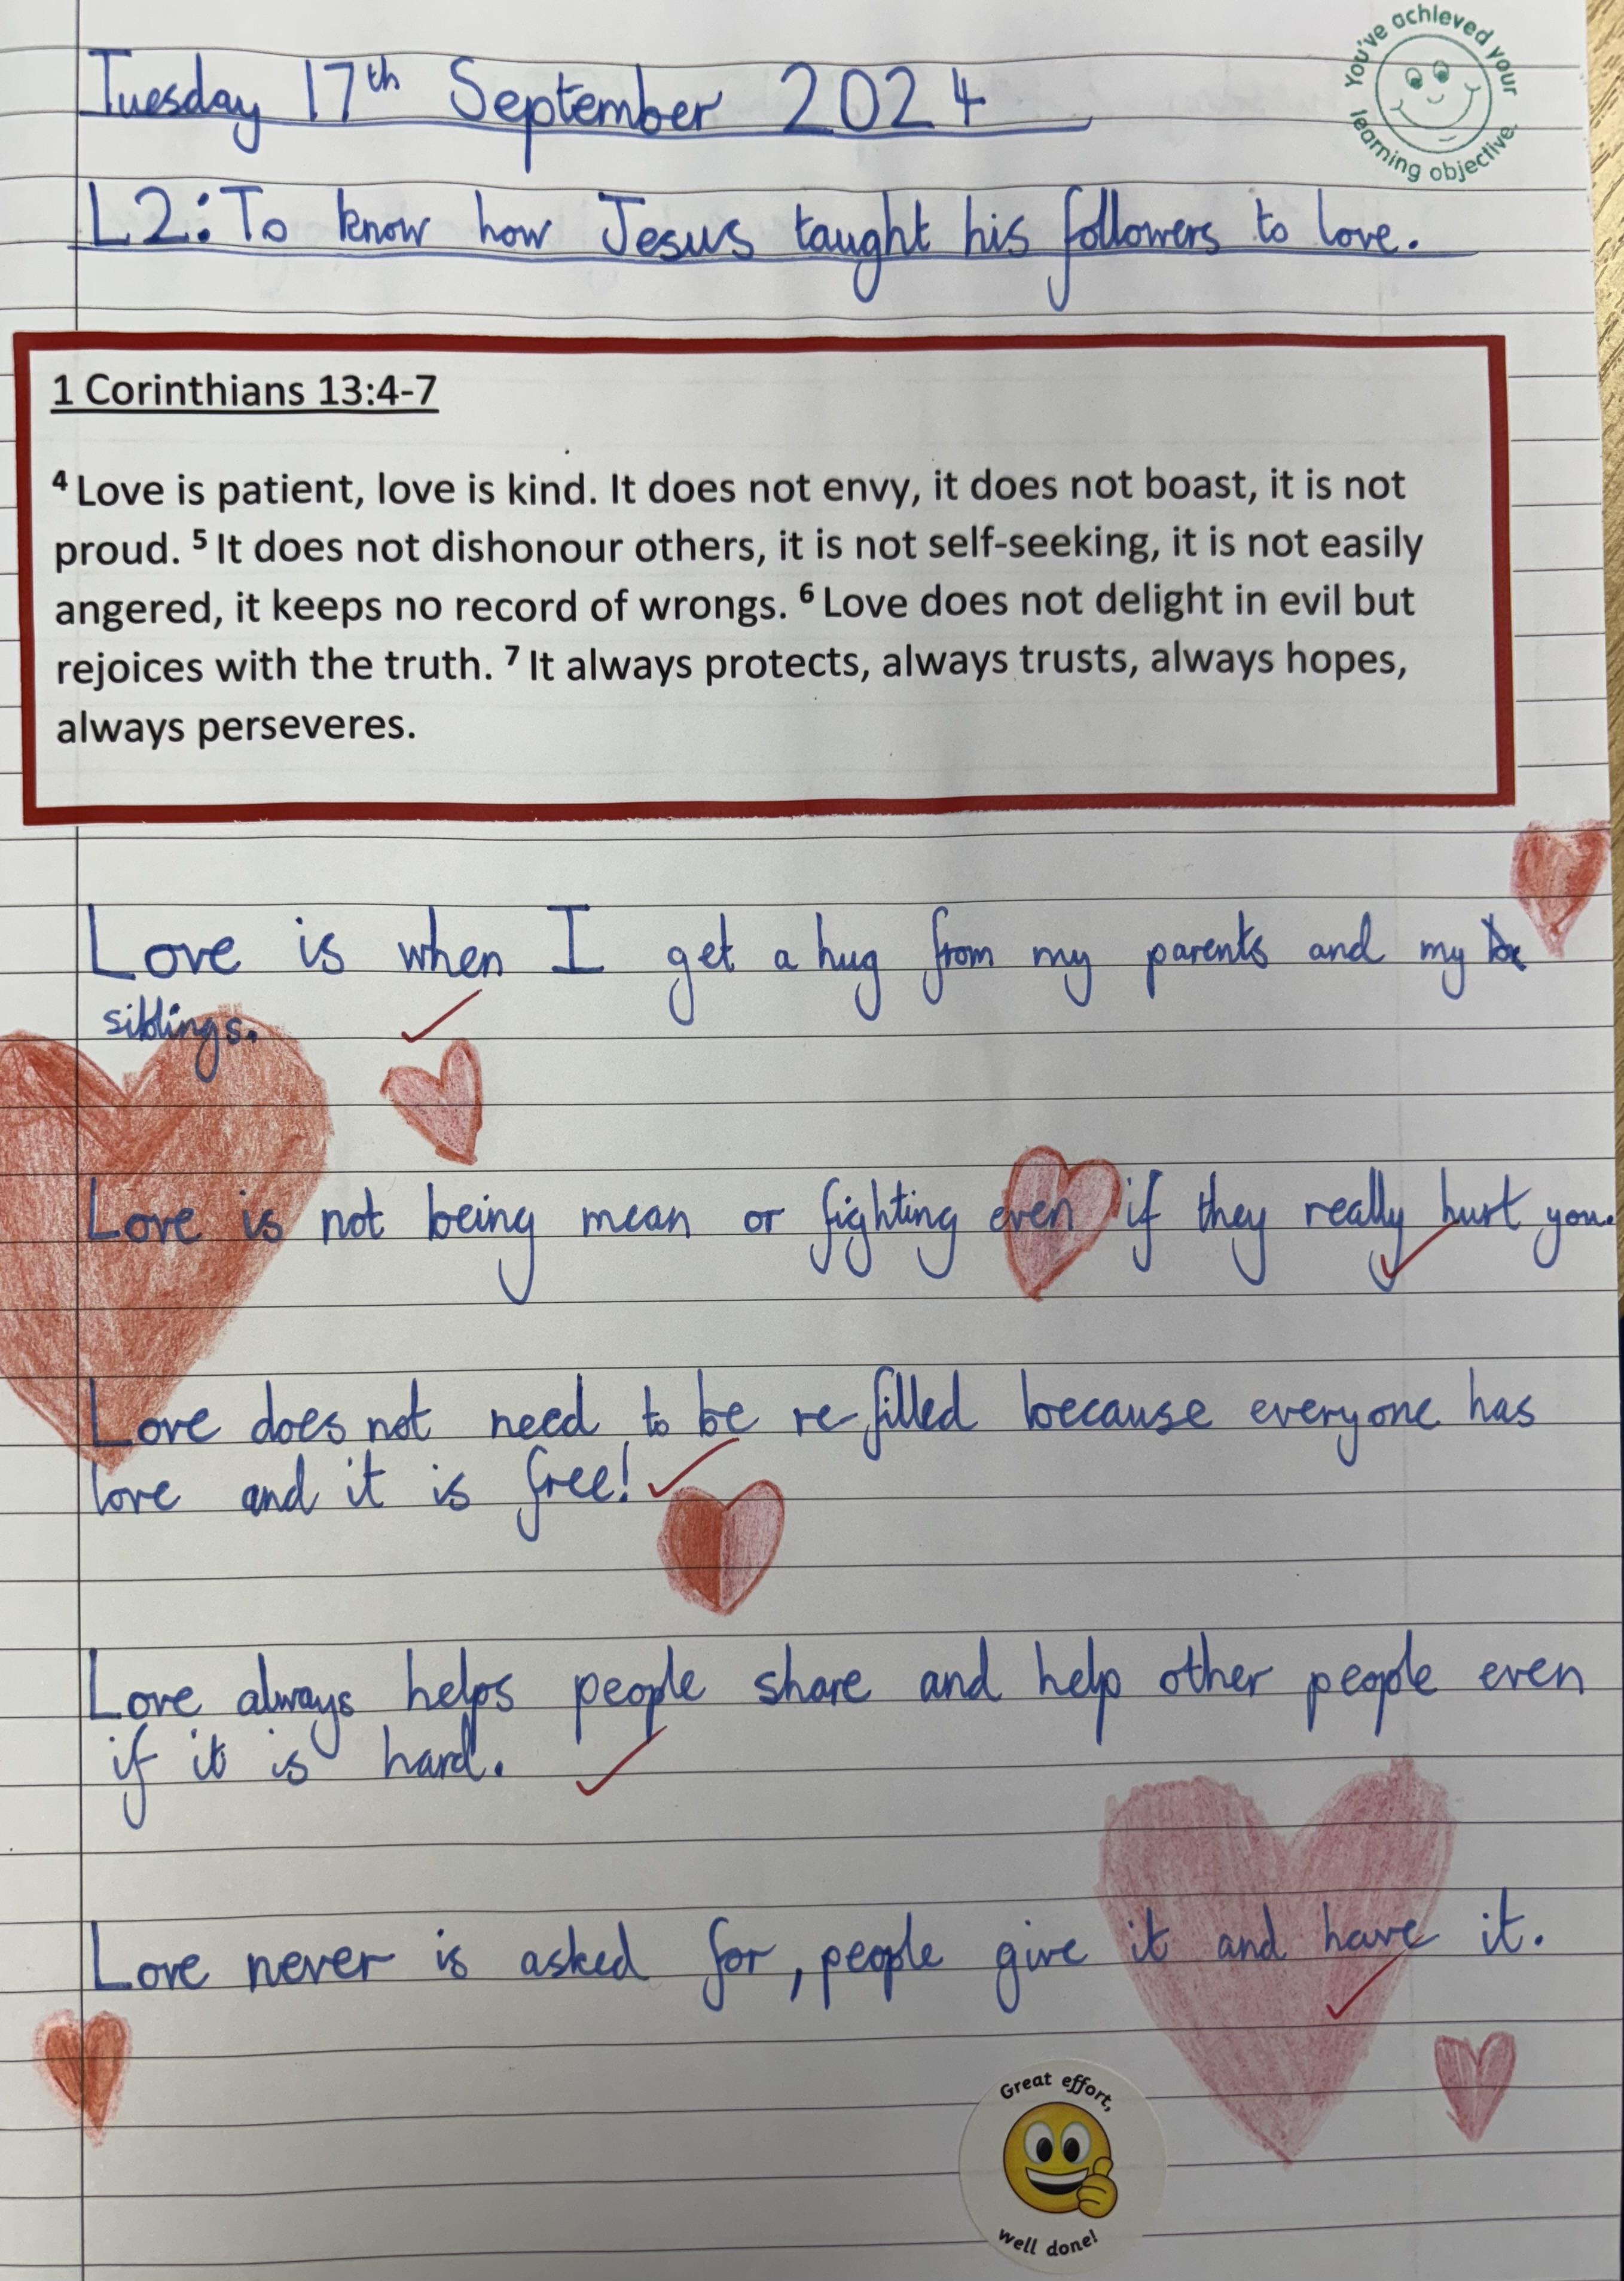 You've achieved your learning objective.
Tuesday 17th September 2024
L2: To know how Jesus taught his followers to love.
1 Corinthians 13:4-7
4 Love is patient, love is kind. It does not envy, it does not boast, it is not
proud. 5 It does not dishonour others, it is not self-seeking, it is not easily
angered, it keeps no record of wrongs. 6 Love does not delight in evil but
rejoices with the truth. 7 It always protects, always trusts, always hopes,
always perseveres.
Love is when I get a hug from my parents and my
siblings.
Love is not being mean or fighting even if they really hurt you.
Love does not need to be re-filled because everyone has
love and it is free!
Love always helps people share and help other people even
if it is hard.
Love never is asked for, people give it and have it.
Great effort,
well done!